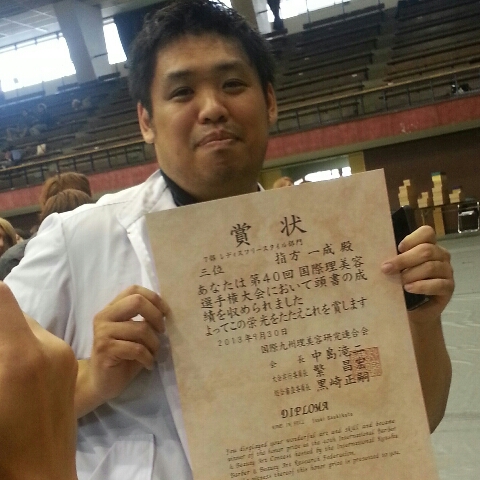 賞状
7部 レディスフリースタイル部門
三位 指方 一成 殿
あなたは第40回国際理美容
選手権大会において頭書の成
績を収められました
よってこの栄光をたたえこれを賞します
2018年9月30日
国際九州理美容研究連合会
会長 中島滝二
大会実行委員長 繁 昌宏
総合審査委員長 黒崎正嗣
DIPLOMA
You displayed your wonderful art and skill and became
winner of the honor prize at the 40th International Barber
& Beauty Art Contest hosted by the International Kyushu
Barber & Beauty Art Research Federation.
this honor prize is presented to you